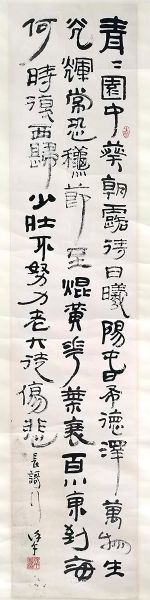 青〻園中葵朝露待日曦陽旾布德澤萬物生
光輝常恐龝節至焜黃華葉衰百川東到海
何時復西歸少壯不努力老大徒傷悲
長謌行